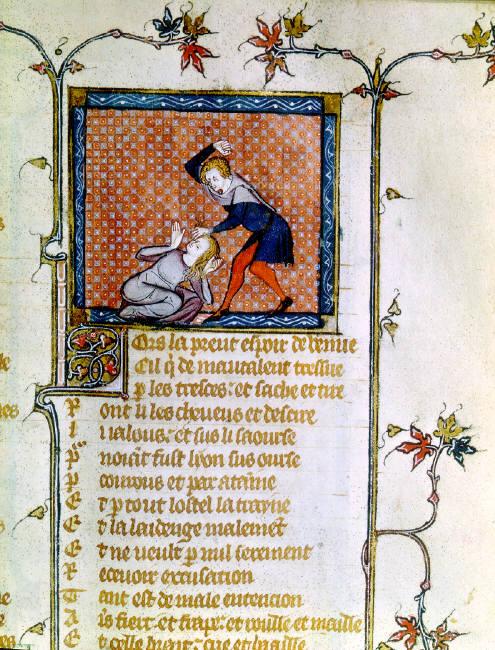 Lors la prent espoir de venue
Cil q̇ de mautalent tressue
p les tresces: et sache et tire
R ont li les cheveus et descire
L i ialous: et sus li saourse
p noiāt fust lyon sus ourse
P courous et par atāine
E t p tout lostel la trayne
E t la laidenge malemēt
E t ne veult p nul serement
R ecevoir excusation
T ant est de male entencion
A īs fiert et frape: et roulle et maille
E t celle brait: crie et braille